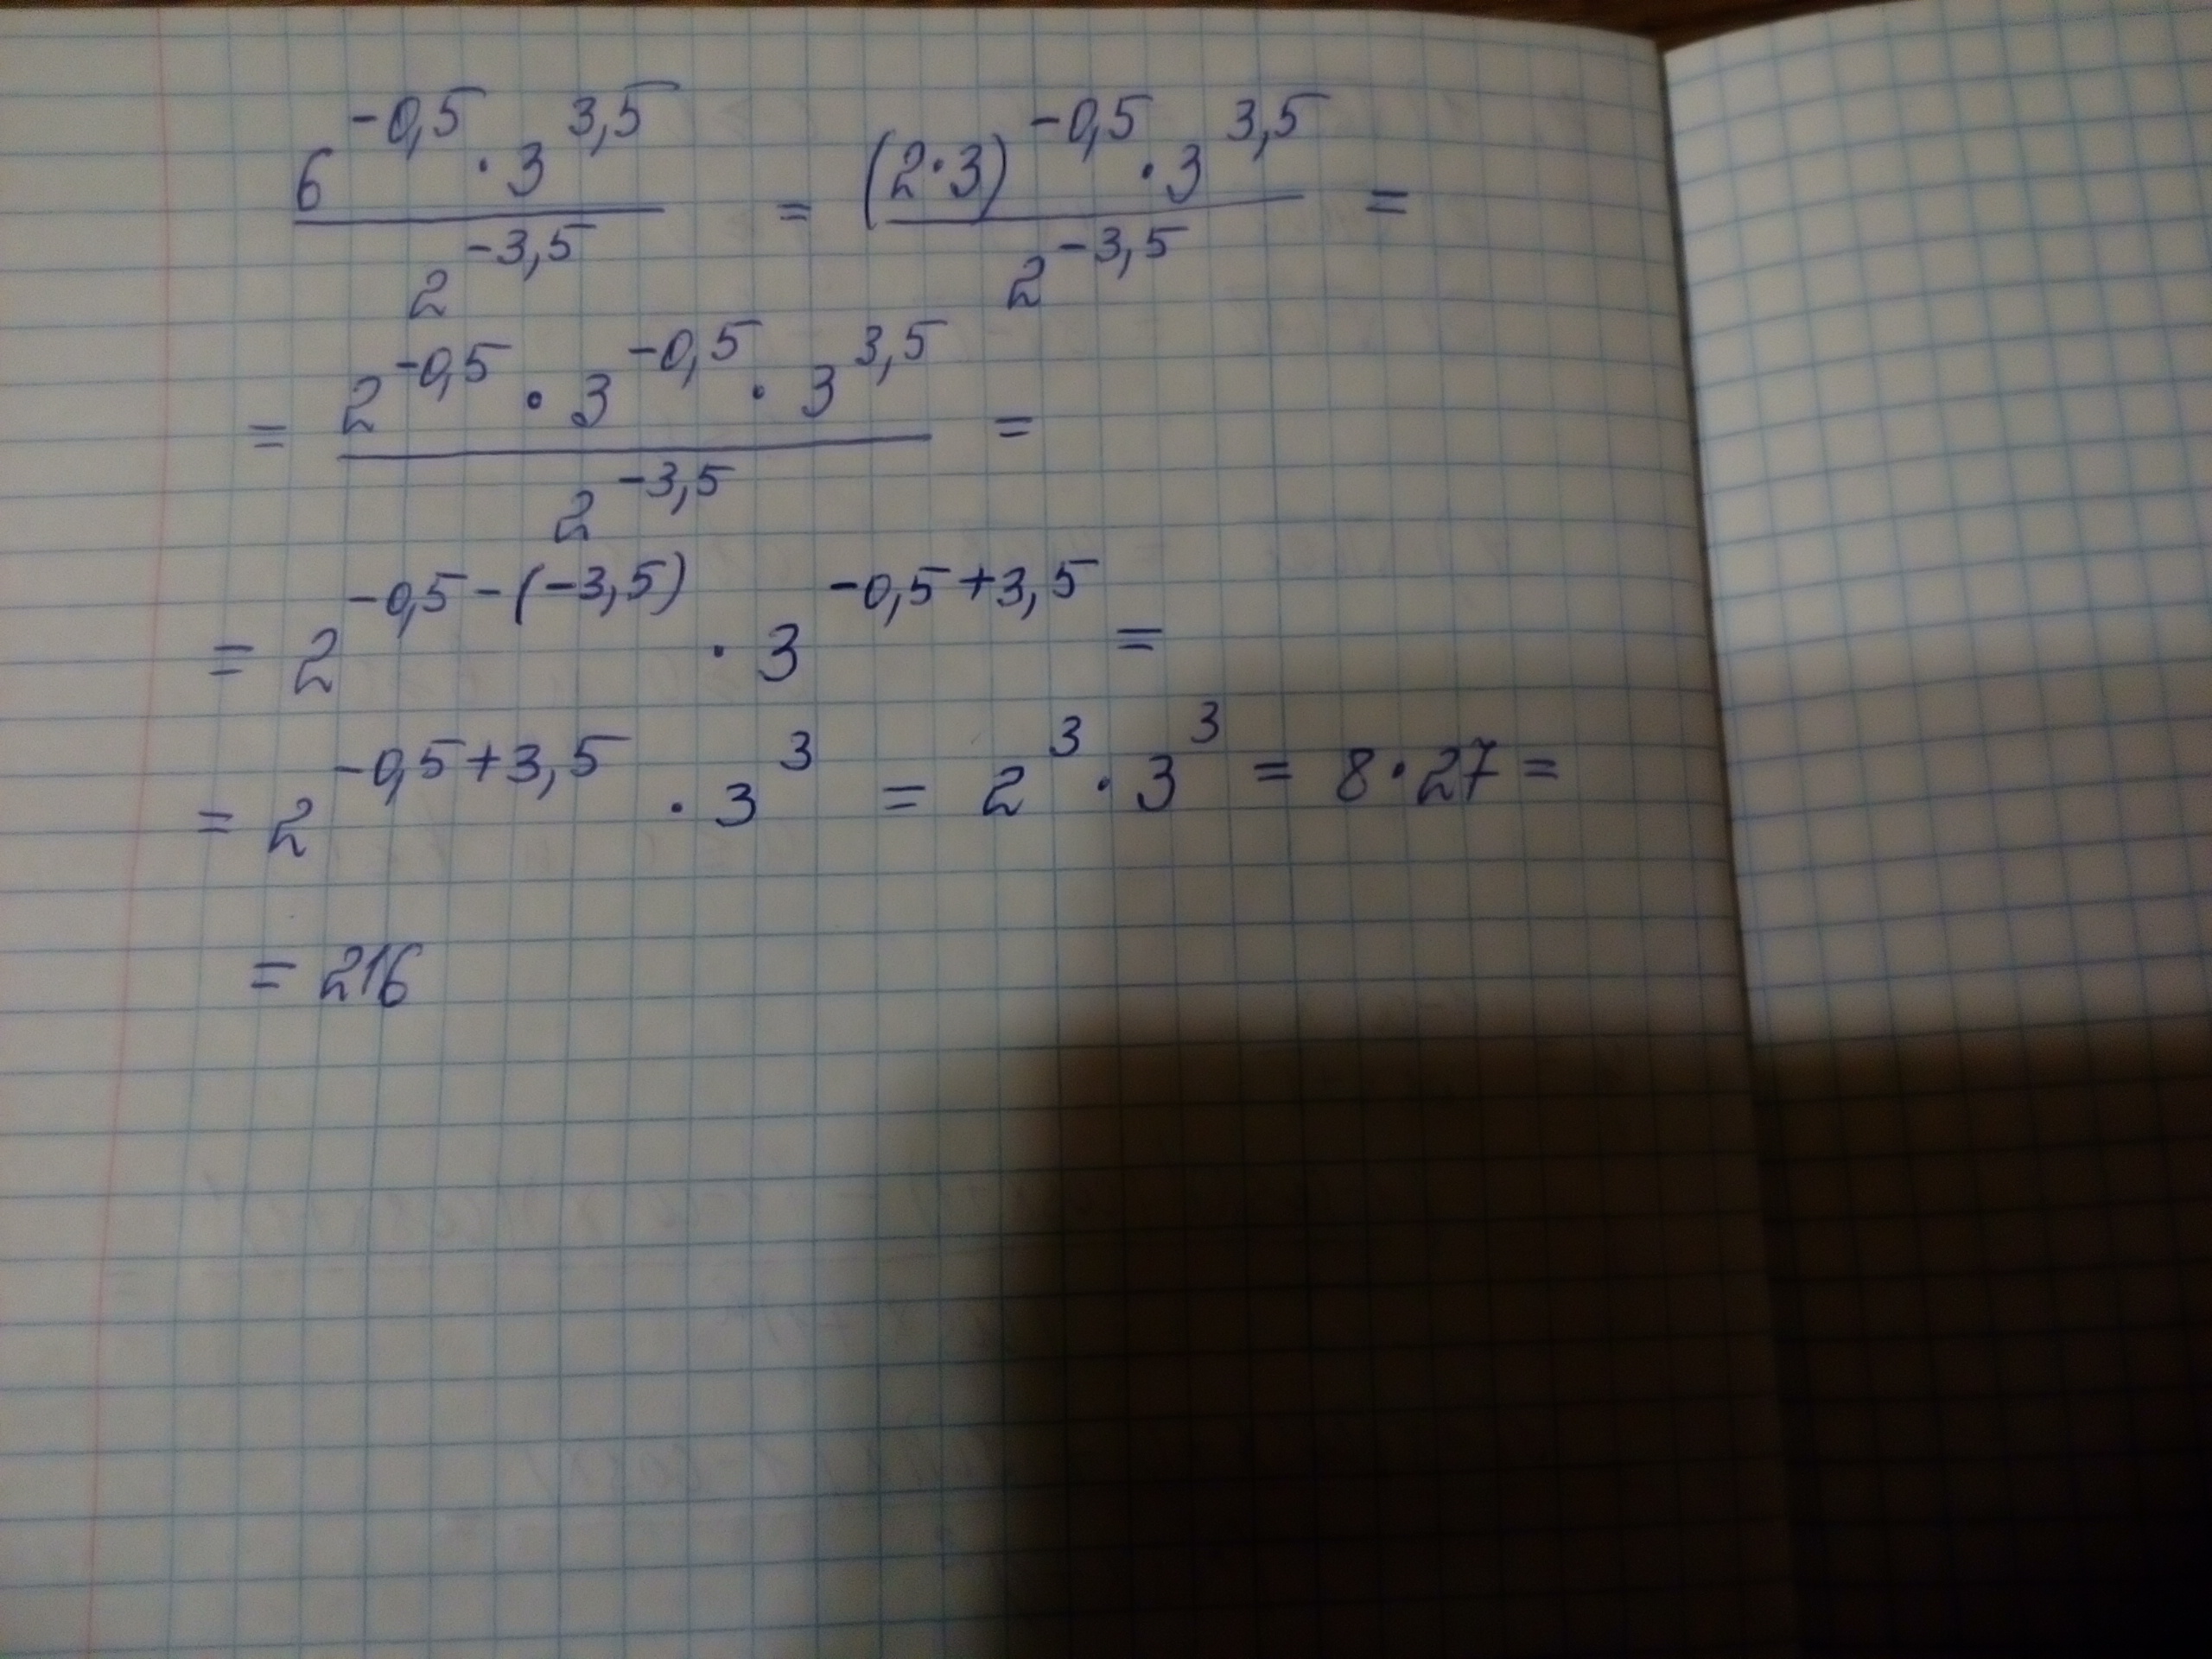 6^{-0,5} · 3^{3,5} / 2^{-3,5} = (2·3)^{-0,5} · 3^{3,5} / 2^{-3,5} =
= 2^{-0,5} · 3^{-0,5} · 3^{3,5} / 2^{-3,5} =
= 2^{-0,5-(-3,5)} · 3^{-0,5+3,5} =
= 2^{-0,5+3,5} · 3^3 = 2^3 · 3^3 = 8·27 =
= 216